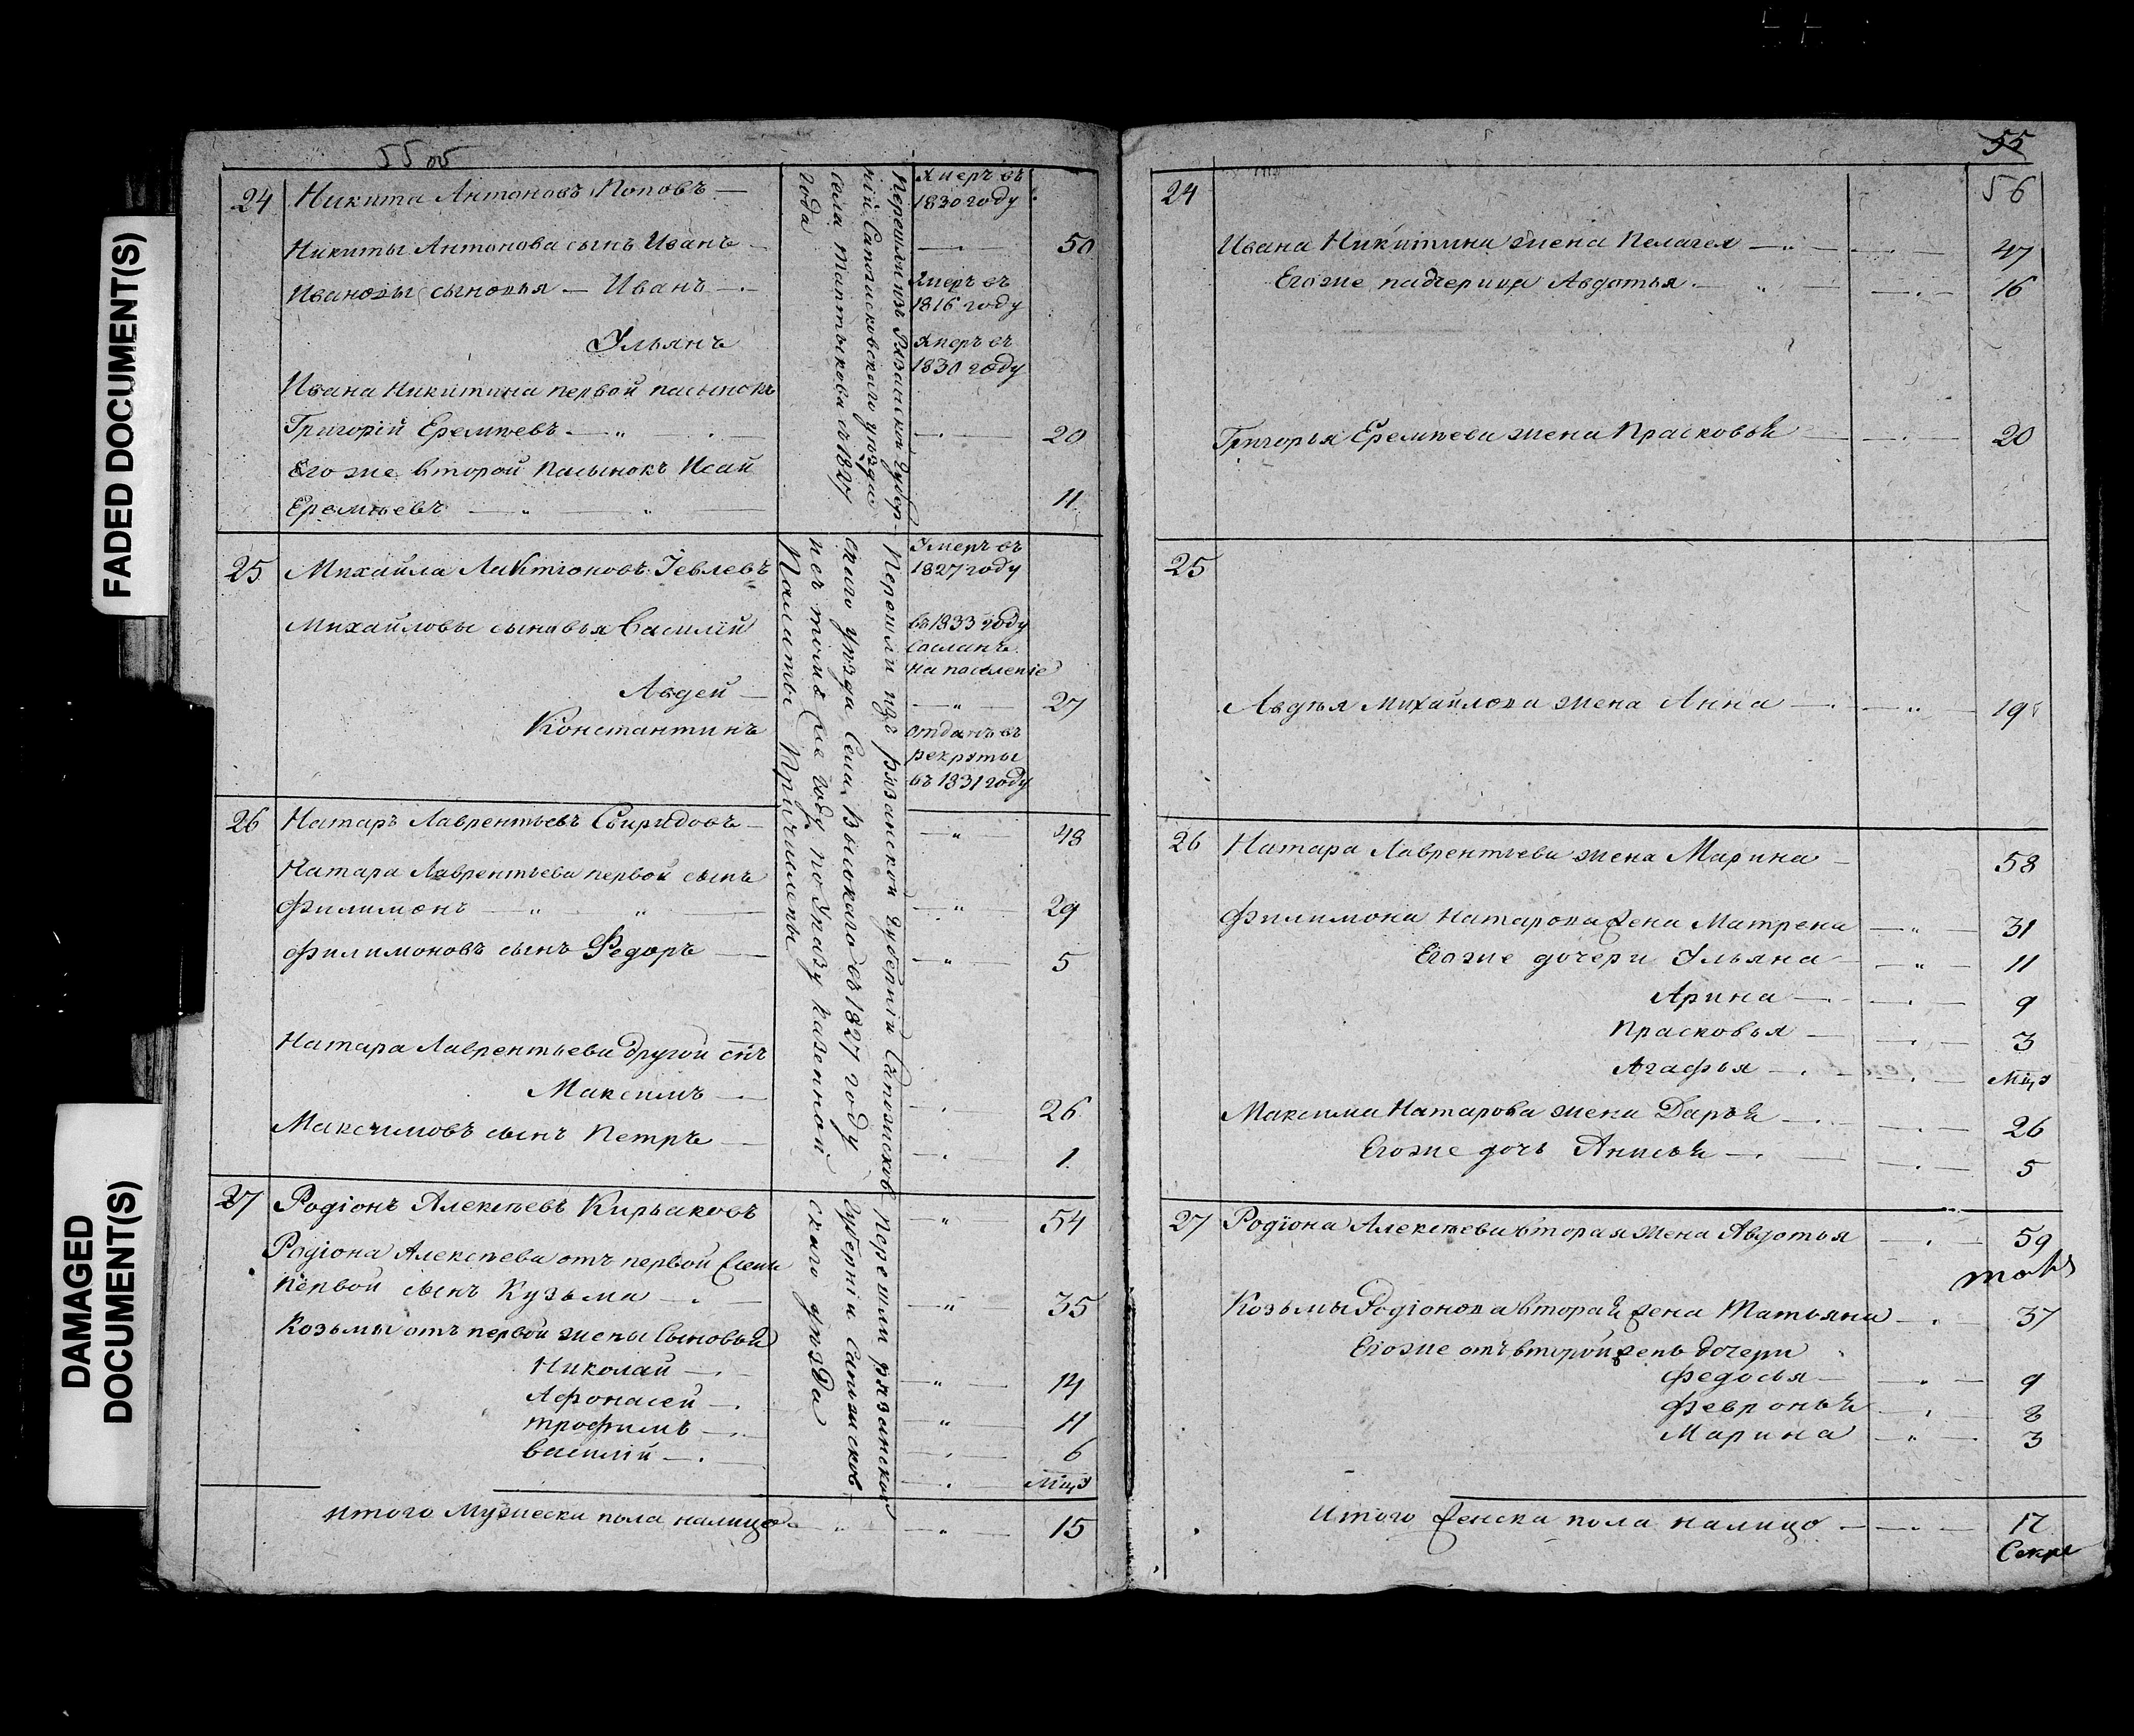 FADED DOCUMENT(S)
DAMAGED
DOCUMENT(S)
55 об
24 Никита Антоновъ Поповъ — Умеръ въ
1830 году
Никиты Антонова сынъ Иванъ — 50
Ивановы сыновья — Иванъ — Умеръ въ
1816 году
Ульянъ Умеръ въ
1830 году
Ивана Никитина первой пасынокъ
Григорій Еремѣевъ — 20
Его же второй пасынокъ Исай
Еремѣевъ — 11
Перешли изъ Рязанской губер-
ніи Сапожковскаго уѣзда
села въ 1827
года
25 Михайла Лактіоновъ Іевлевъ Умеръ въ
1827 году
Михайловы сыновья Василій въ 1833 году
Сосланъ
на поселеніе
Авдей — 27
Константинъ отданъ въ
рекруты
въ 1831 году
Перешли изъ рязанской губерніи Сапожков
скаго уѣзда Села Высокаго въ 1827 году
по Указу казенной
Палаты Причислены
26 Натаръ Лаврентьевъ Свиридовъ — 48
Натара Лаврентьева первой сынъ
Филимонъ — 29
Филимоновъ сынъ Федоръ — 5
Натара Лаврентьева другой снъ
Максимъ — 26
Максимовъ сынъ Петръ — 1
27 Родіонъ Алексѣевъ Кирьаковъ 54
Родіона Алексѣева отъ первой жены
первой сынъ Кузьма — 35
Козьмы отъ первой жены Сыновья
Николай — 14
Афонасей — 11
трофимъ — 6
василій — Мцъ
Перешли рязанской
Губерніи Сапожков-
скаго уѣзда
итого Мужеска пола налицо — 15
55
56
24
Ивана Никитина жена Пелагея — 47
Его же падчерица Авдотья — 16
Григорья Еремѣева жена Прасковья — 20
25
Авдѣя Михайлова жена Анна — 19
26 Натара Лаврентьева жена Марина — 58
Филимона Натарова жена Матрена — 31
Его же дочери Ульяна — 11
Арина — 9
Прасковья — 3
Агафья — Мцъ
Максима Натарова жена Дарья — 26
Его же дочь Анисья — 5
27 Родіона Алексѣева вторая жена Авдотья — 59
Козьмы Родіонова вторая жена Татьяна — 37
Его же отъ второй жены дочери
Федосья — 9
Февронья — 8
Марина — 3
Итого женска пола налицо — 17